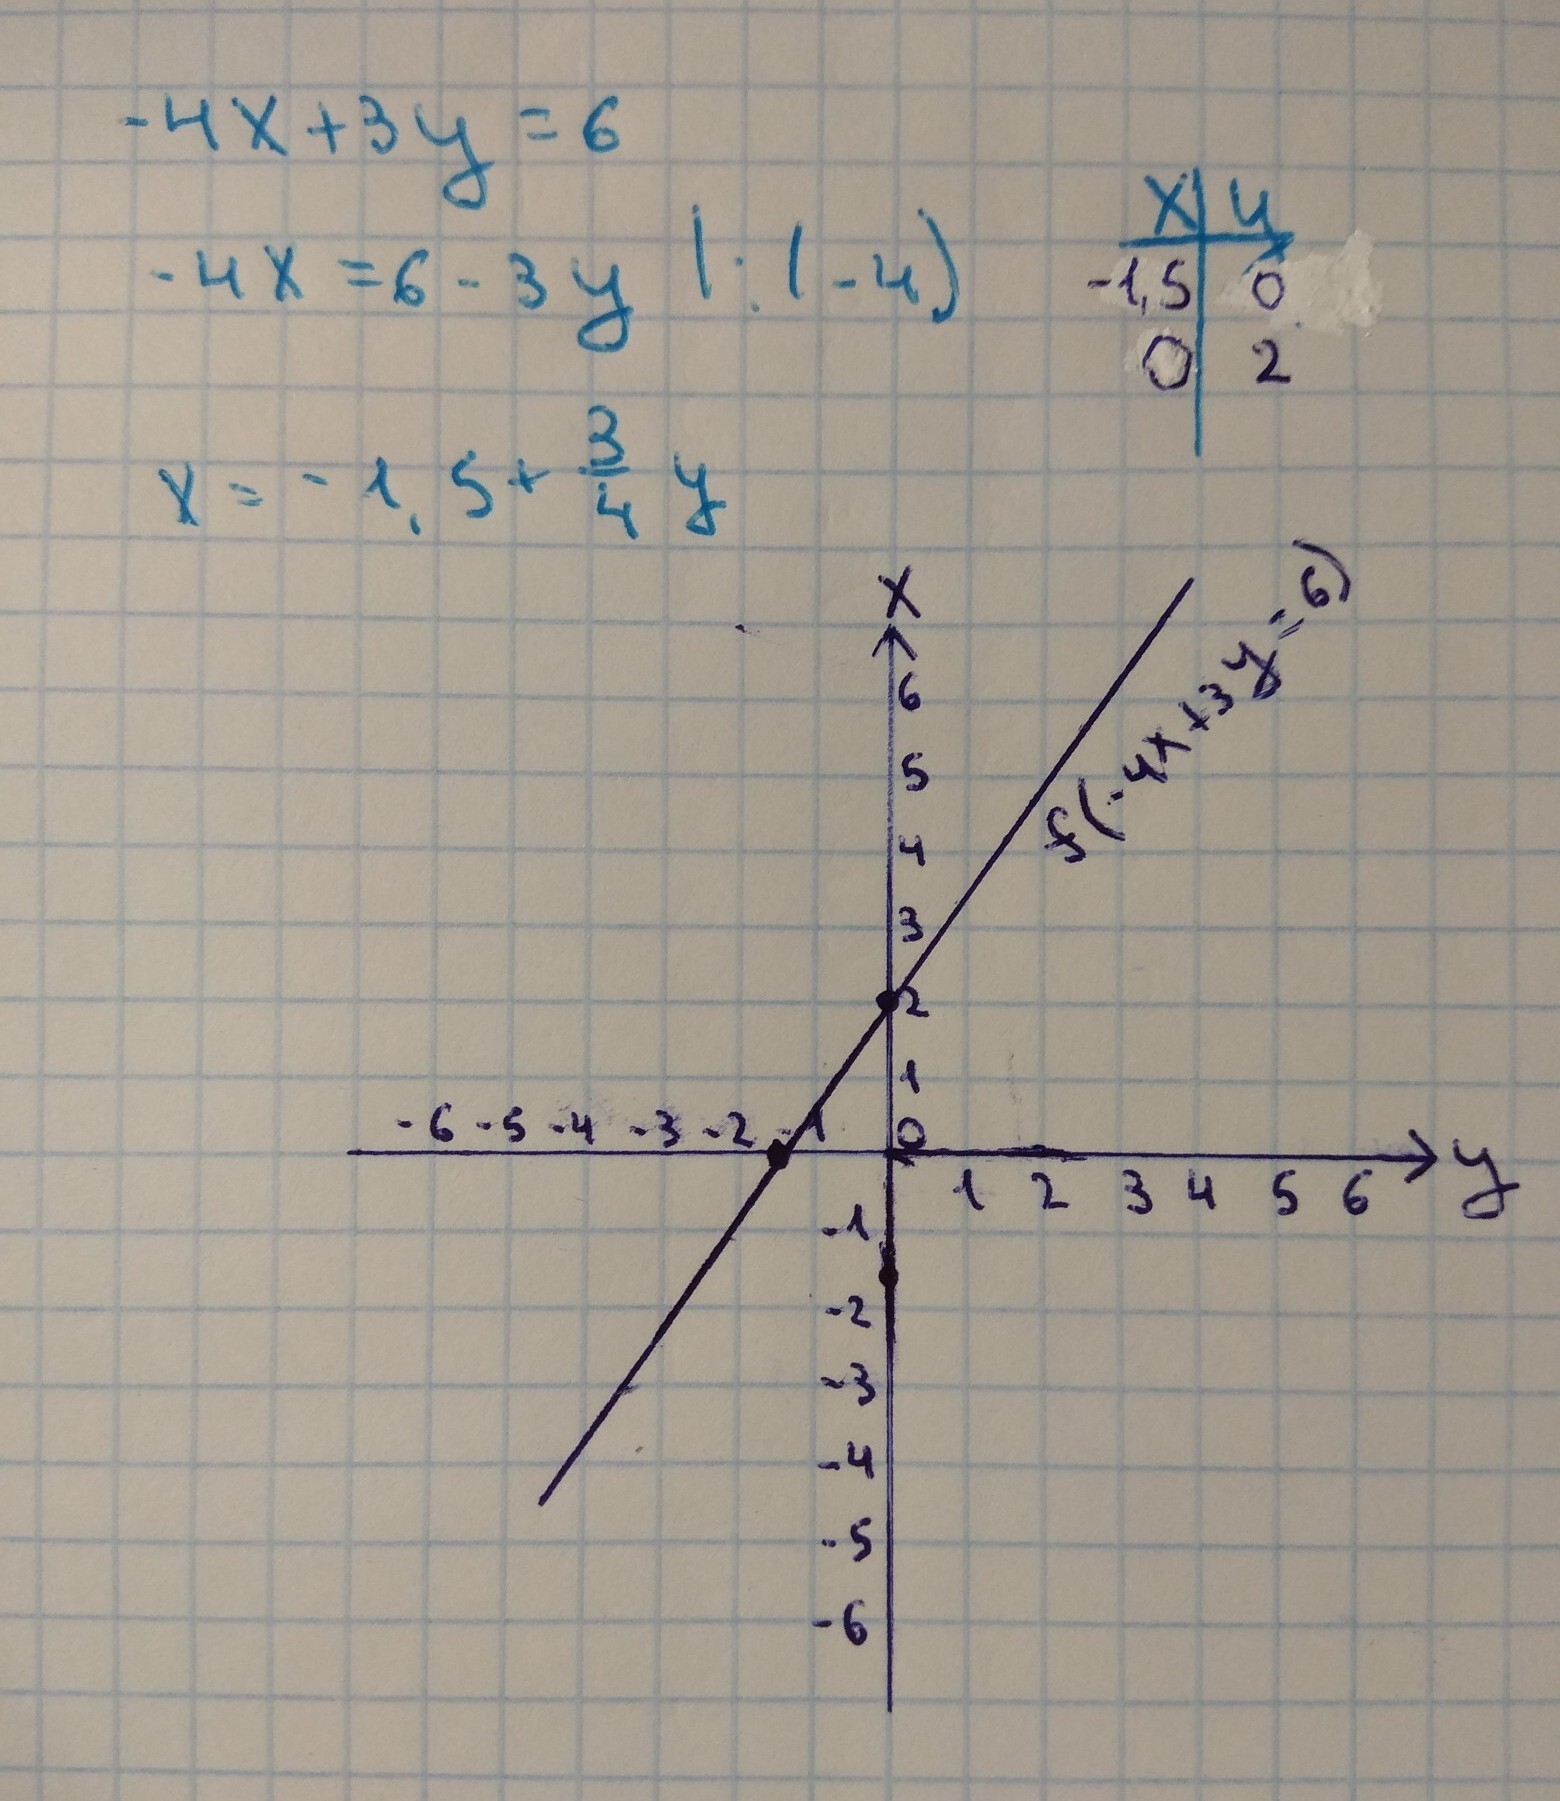 -4x+3y=6
-4x=6-3y |:(-4)
x=-1,5+3/4 y
x y
-1,5 0
0 2
x
f(-4x+3y=6)
6
5
4
3
2
1
-6 -5 -4 -3 -2 -1 0
1 2 3 4 5 6 y
-1
-2
-3
-4
-5
-6